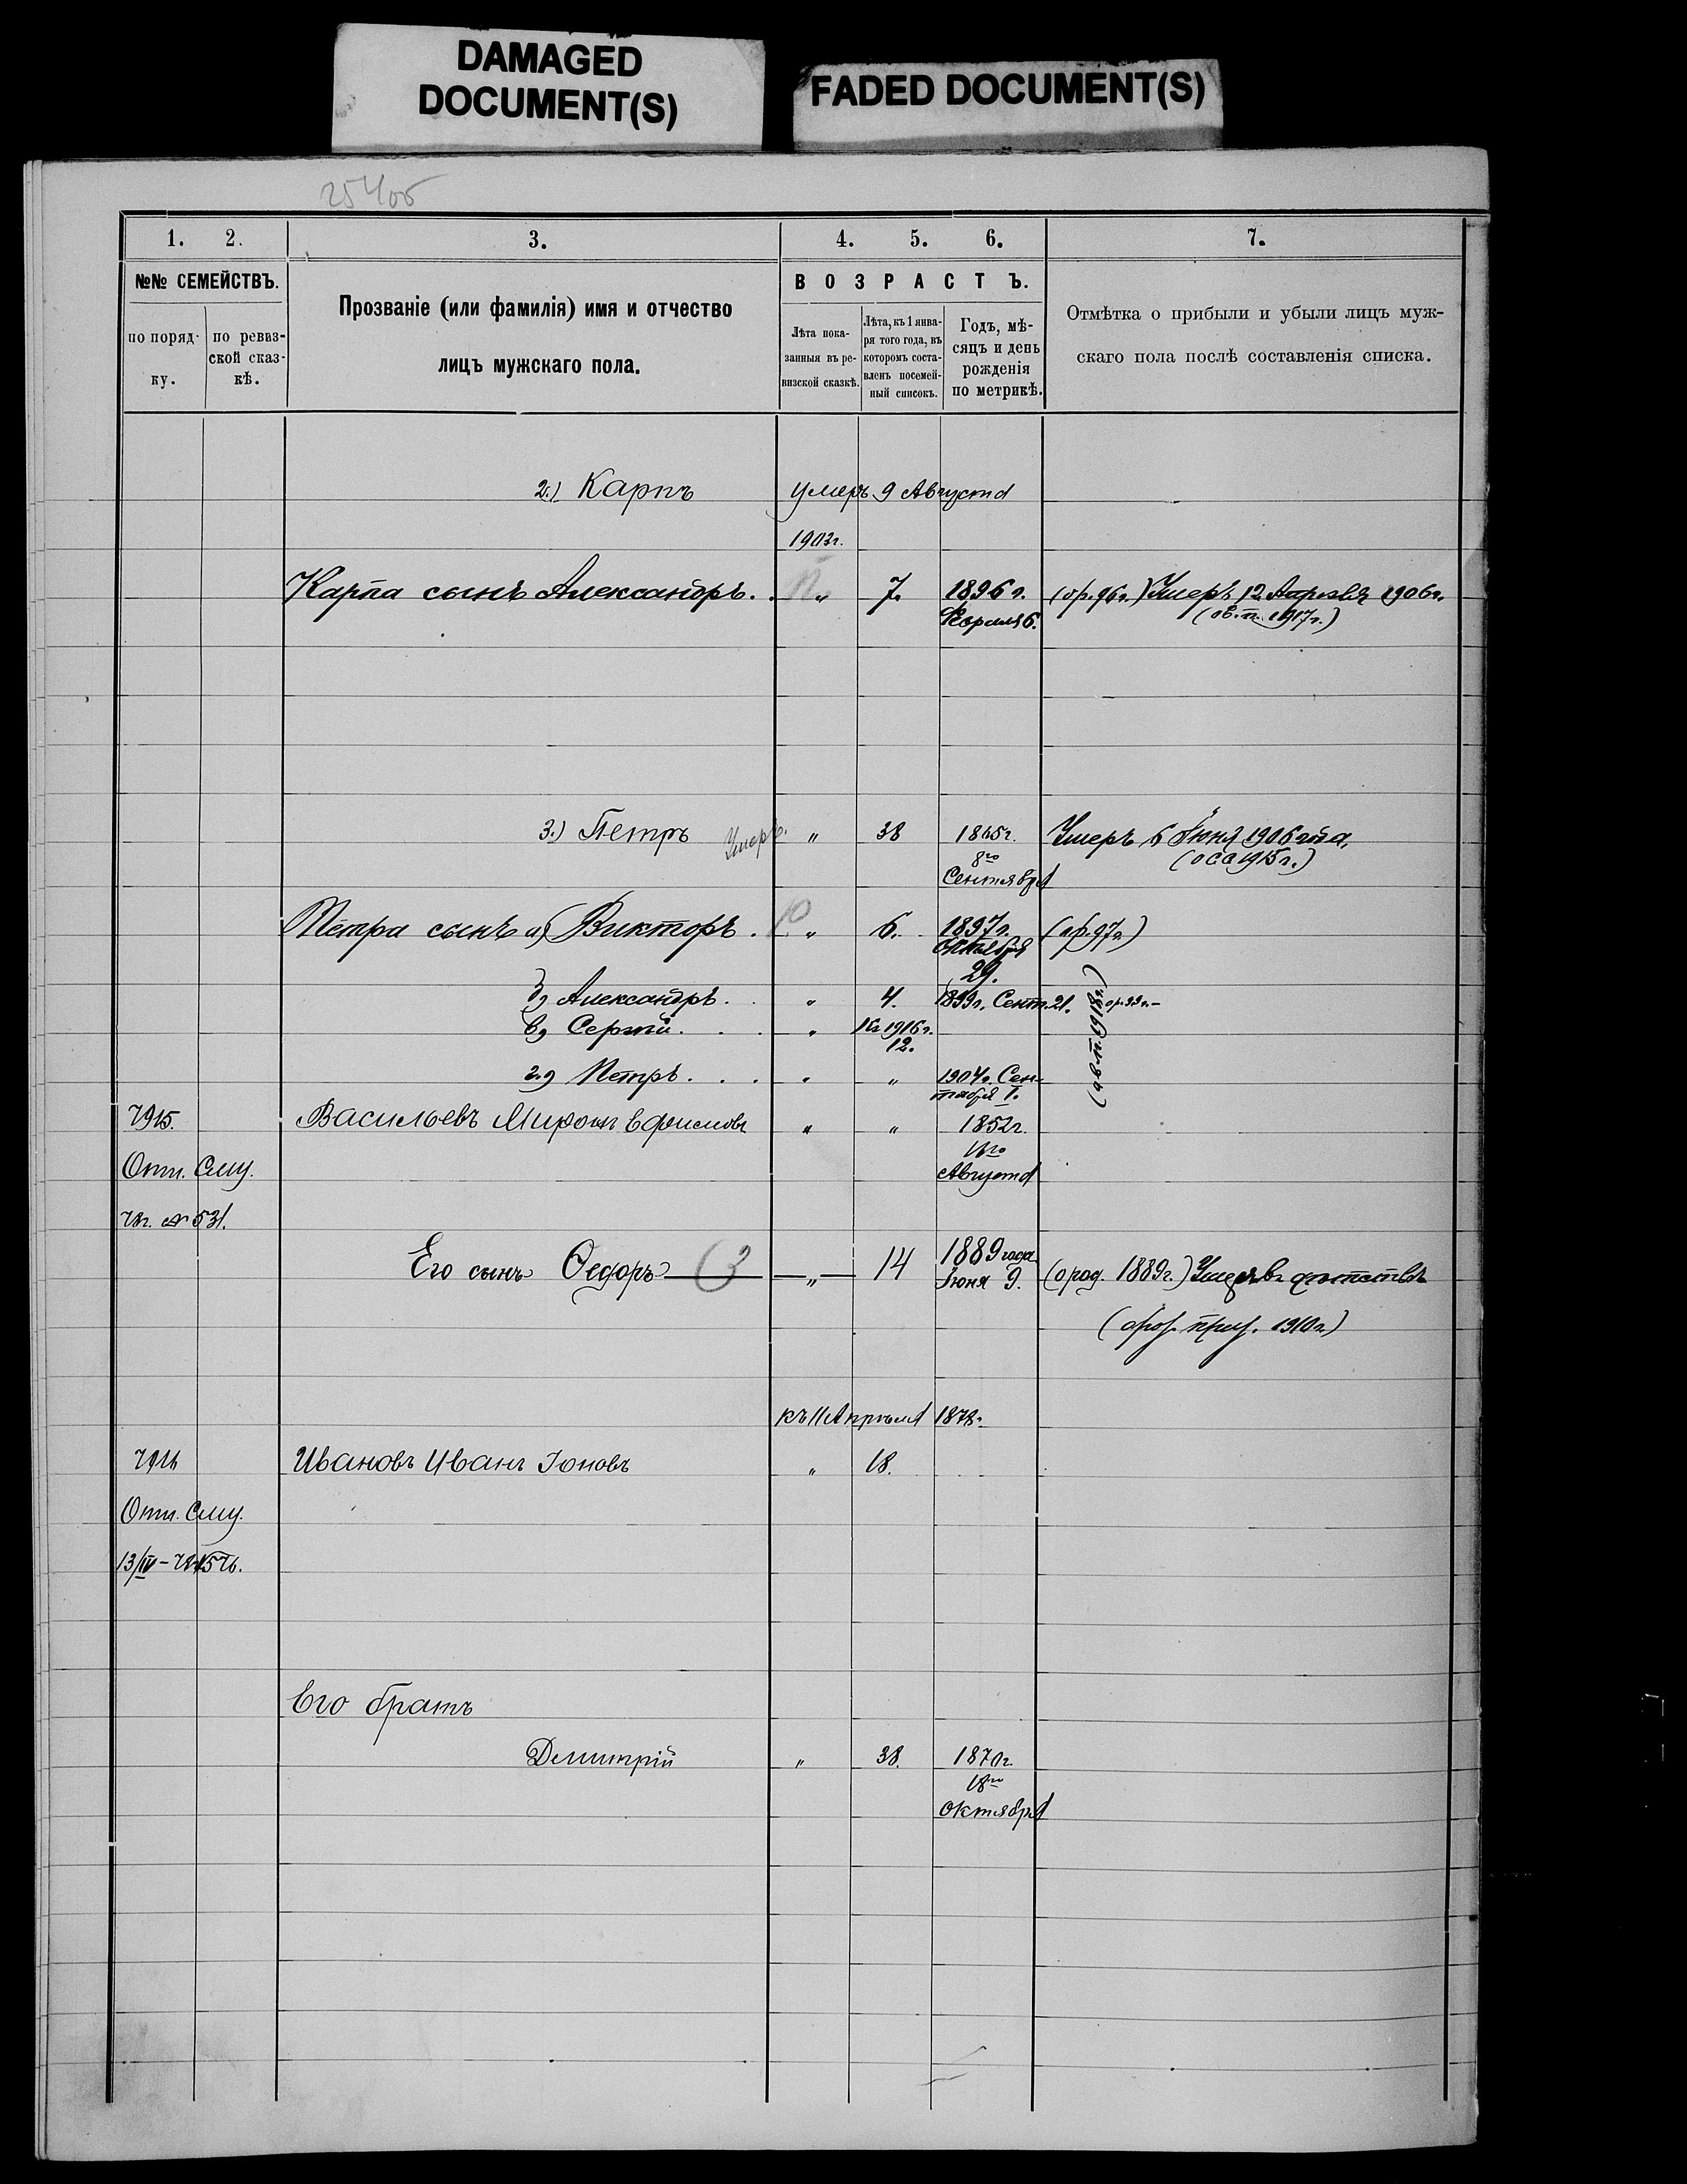 DAMAGED
DOCUMENT(S)
FADED DOCUMENT(S)
1. 2. 3. 4. 5. 6. 7.
№№ СЕМЕЙСТВЪ.
по поряд-
ку.
по ревиз-
ской сказ-
кѣ.
Прозваніе (или фамилія) имя и отчество
лицъ мужскаго пола.
ВОЗРАСТЪ.
Лѣта пока-
занныя въ ре-
визской сказкѣ.
Лѣта, къ 1 янва-
ря того года, въ
которомъ соста-
вленъ посемей-
ный списокъ.
Годъ, мѣ-
сяцъ и день
рожденія
по метрикѣ.
Отмѣтка о прибыли и убыли лицъ муж-
скаго пола послѣ составленія списка.
2.) Карпъ умеръ 9 Августа
1903г.
Карпа сынъ Александръ. „ 7. 1896 г. (ор. 96 г.) Умеръ 12 Апрѣля 1906г.
(об. п. 1917г.)
3.) Петръ Умеръ. „ 38 Умеръ 6 Іюня 1906 года,
8го
Сентября
Петра сынъ а) Викторъ. „ 6. 1897г. (ор. 97г.)
октября
29.
б) Александръ. „ 4. 1899г. Сент. 21. ор. 99 г.
в) Сергѣй. „ 1916г.
12.
г.) Петръ. „ „ 1904г. Сен-
тября 1.
Васильевъ Миронъ Ефимовъ „ „ 1852г.
Августа
Отн. Сму.
№ 531.
Его сынъ Ѳедоръ „ 14 1889 года
Іюня 9. (о род. 1889г.) Умеръ въ дѣтствѣ
1910г.)
къ 11 Апрѣля
Ивановъ Иванъ Іоновъ „ 18.
Отн. Сму.
13/IV
Его братъ
Дмитрій „ 38. 1870г.
18го
октября